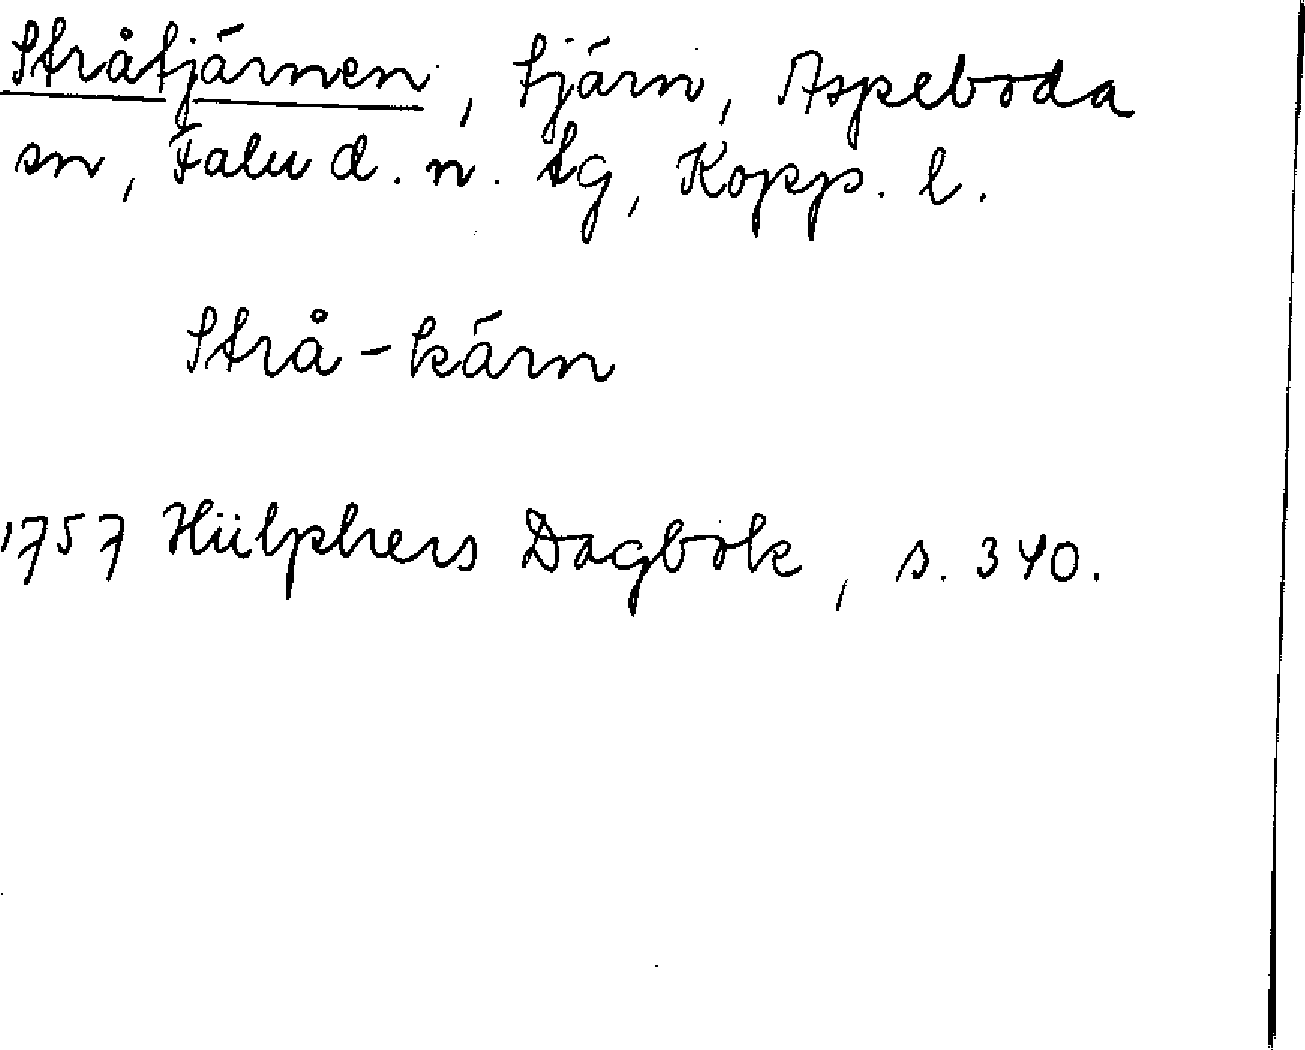 Stråtjärnen, tjärn, Aspeboda
sn, Falu d. n. tg, Kopp. l.
Strå-kärn
1757 Hülphers Dagbok, s. 340.